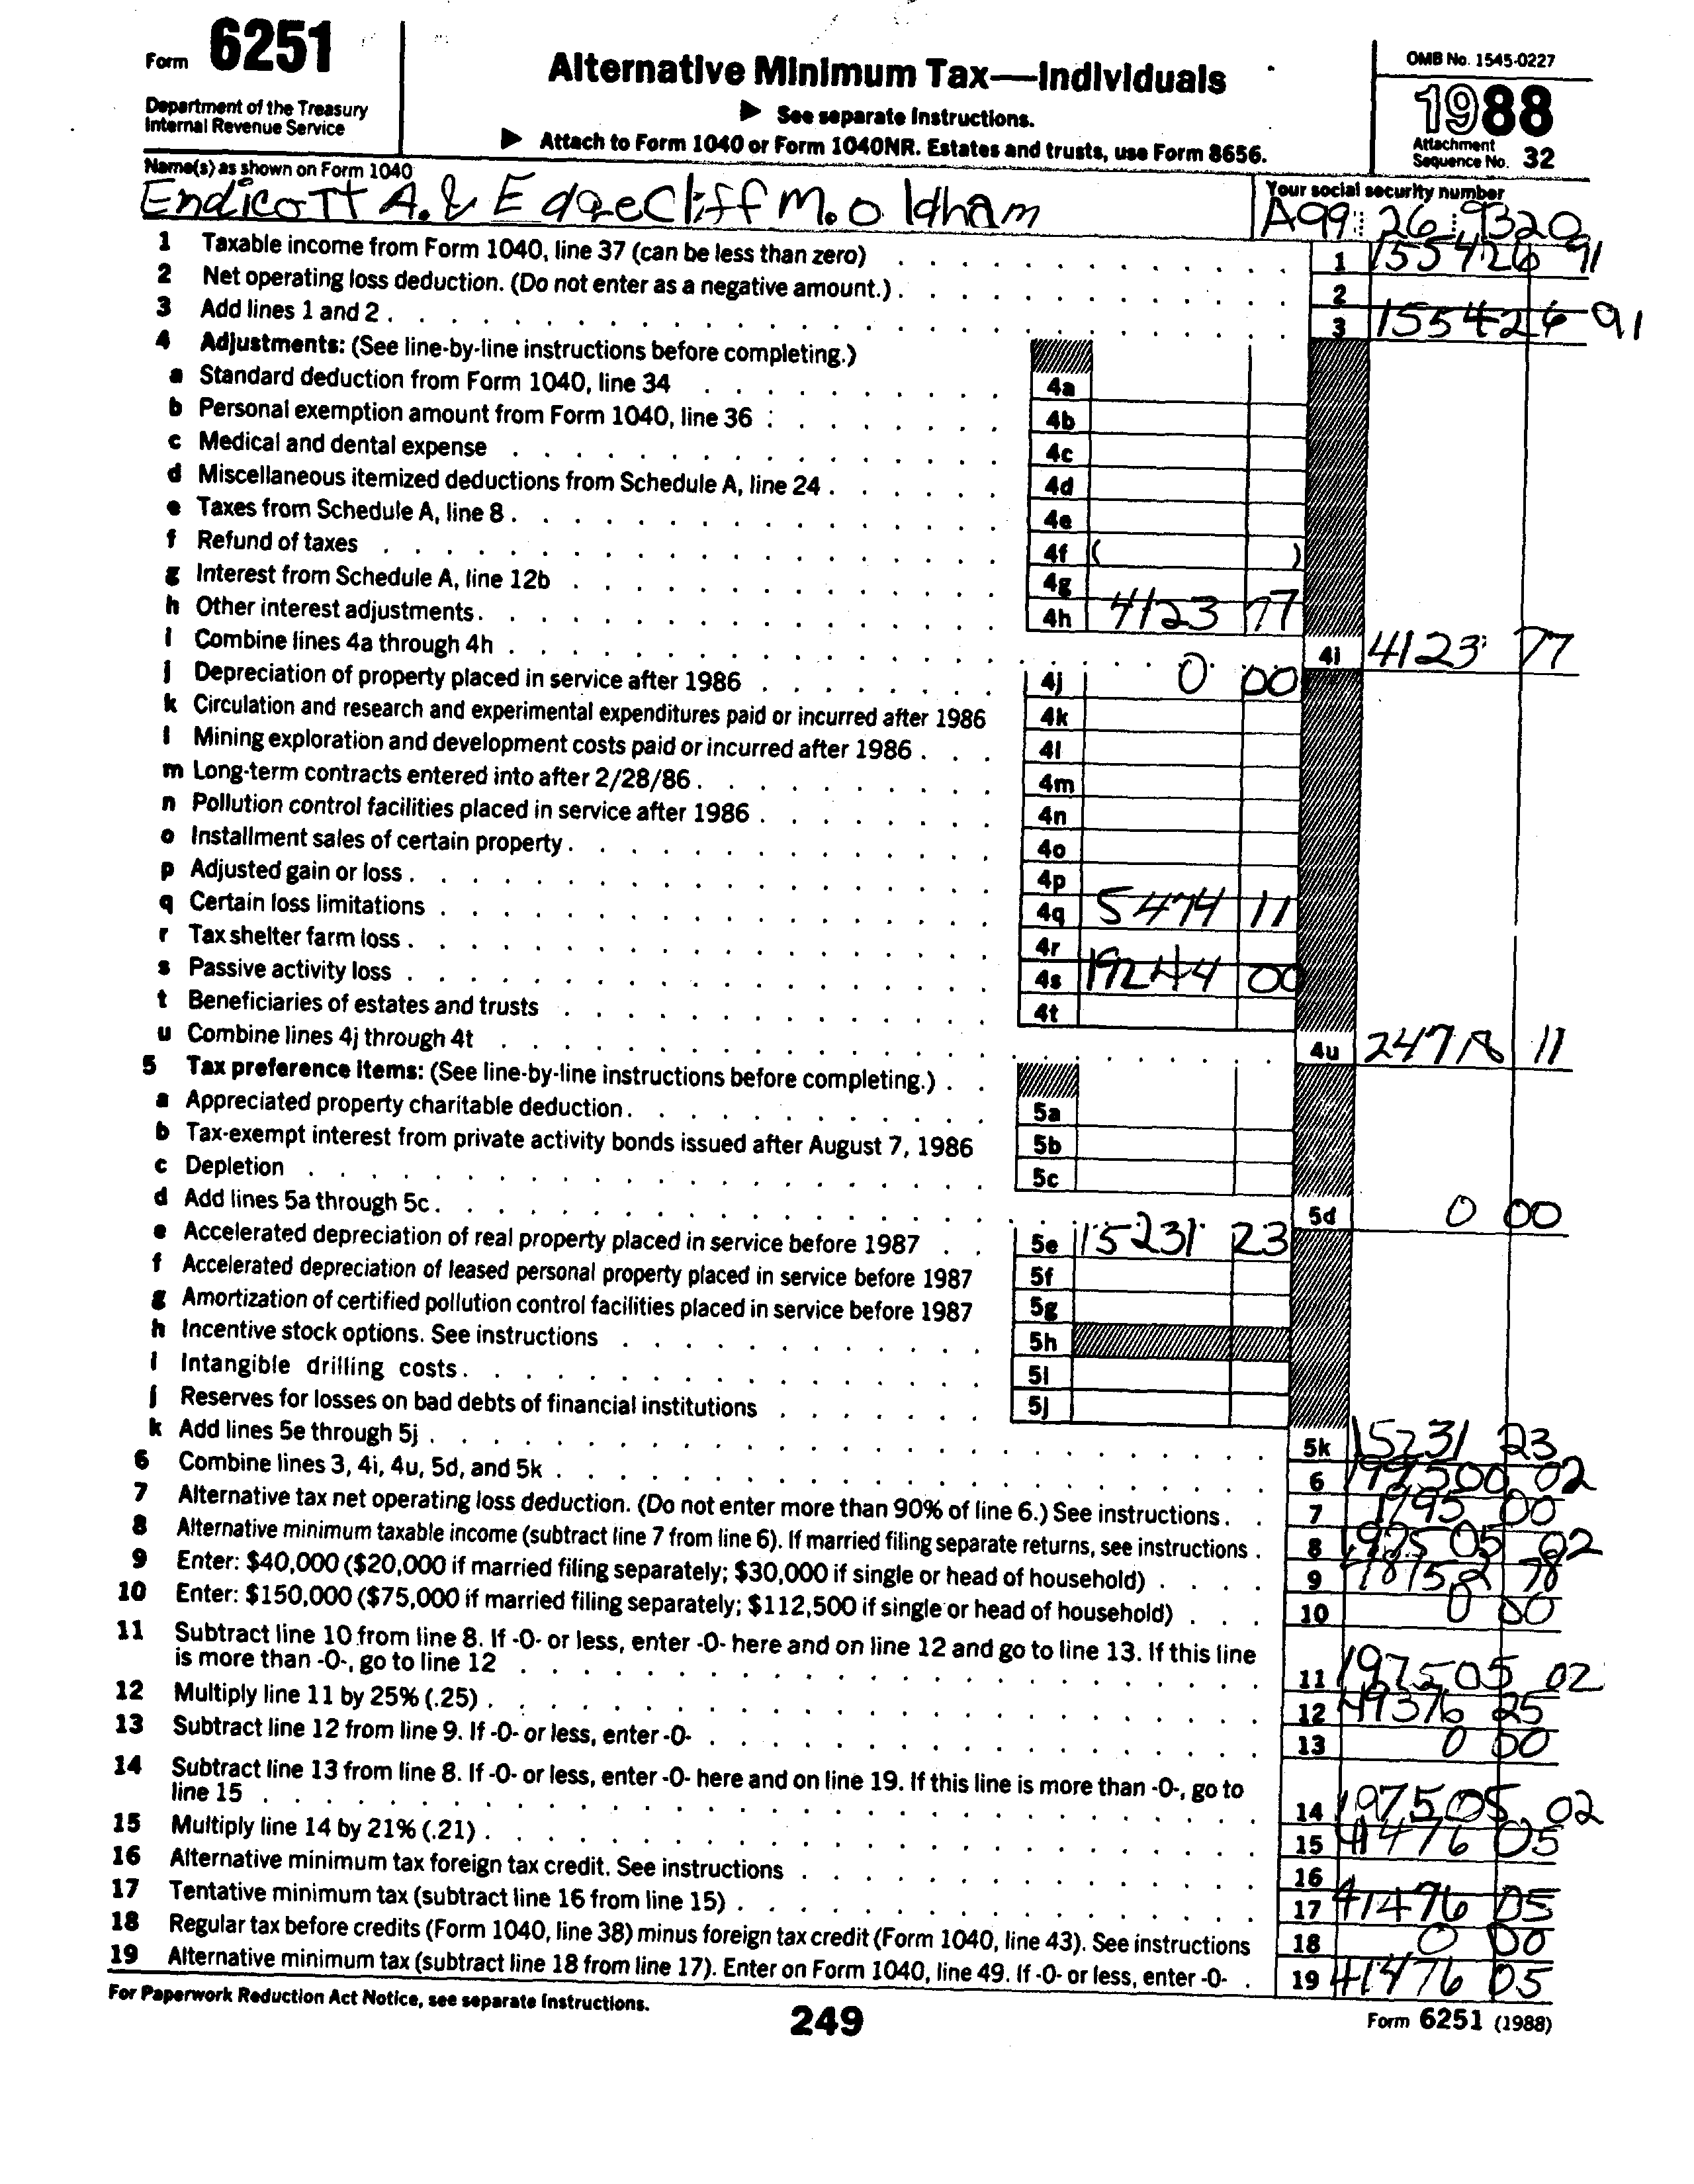 Form 6251
Department of the Treasury
Internal Revenue Service
Alternative Minimum Tax—Individuals
▶ See separate Instructions.
▶ Attach to Form 1040 or Form 1040NR. Estates and trusts, use Form 8656.
OMB No. 1545-0227
1988
Attachment
Sequence No. 32
Name(s) as shown on Form 1040
Endicott A. & Edgecliff M. Oldham
Your social security number
A99 26 9320
1 Taxable income from Form 1040, line 37 (can be less than zero) 1 155426 91
2 Net operating loss deduction. (Do not enter as a negative amount.) 2
3 Add lines 1 and 2 3 155426 91
4 Adjustments: (See line-by-line instructions before completing.)
a Standard deduction from Form 1040, line 34 4a
b Personal exemption amount from Form 1040, line 36 4b
c Medical and dental expense 4c
d Miscellaneous itemized deductions from Schedule A, line 24 4d
e Taxes from Schedule A, line 8 4e
f Refund of taxes 4f ( )
g Interest from Schedule A, line 12b 4g
h Other interest adjustments 4h 4123 77
i Combine lines 4a through 4h 4i 4123 77
j Depreciation of property placed in service after 1986 4j 0 00
k Circulation and research and experimental expenditures paid or incurred after 1986 4k
l Mining exploration and development costs paid or incurred after 1986 4l
m Long-term contracts entered into after 2/28/86 4m
n Pollution control facilities placed in service after 1986 4n
o Installment sales of certain property 4o
p Adjusted gain or loss 4p
q Certain loss limitations 4q 5474 11
r Tax shelter farm loss 4r
s Passive activity loss 4s 19244 00
t Beneficiaries of estates and trusts 4t
u Combine lines 4j through 4t 4u 24718 11
5 Tax preference items: (See line-by-line instructions before completing.)
a Appreciated property charitable deduction 5a
b Tax-exempt interest from private activity bonds issued after August 7, 1986 5b
c Depletion 5c
d Add lines 5a through 5c 5d 0 00
e Accelerated depreciation of real property placed in service before 1987 5e 15231 23
f Accelerated depreciation of leased personal property placed in service before 1987 5f
g Amortization of certified pollution control facilities placed in service before 1987 5g
h Incentive stock options. See instructions 5h
i Intangible drilling costs 5i
j Reserves for losses on bad debts of financial institutions 5j
k Add lines 5e through 5j 5k 15231 23
6 Combine lines 3, 4i, 4u, 5d, and 5k 6 199500 02
7 Alternative tax net operating loss deduction. (Do not enter more than 90% of line 6.) See instructions 7 1995 00
8 Alternative minimum taxable income (subtract line 7 from line 6). If married filing separate returns, see instructions 8 197505 02
9 Enter: $40,000 ($20,000 if married filing separately; $30,000 if single or head of household) 9 78
10 Enter: $150,000 ($75,000 if married filing separately; $112,500 if single or head of household) 10 0 00
11 Subtract line 10 from line 8. If -0- or less, enter -0- here and on line 12 and go to line 13. If this line
is more than -0-, go to line 12 11 197505 02
12 Multiply line 11 by 25% (.25) 12 49376 25
13 Subtract line 12 from line 9. If -0- or less, enter -0- 13 0 00
14 Subtract line 13 from line 8. If -0- or less, enter -0- here and on line 19. If this line is more than -0-, go to
line 15 14 197505 02
15 Multiply line 14 by 21% (.21) 15 41476 05
16 Alternative minimum tax foreign tax credit. See instructions 16
17 Tentative minimum tax (subtract line 16 from line 15) 17 41476 05
18 Regular tax before credits (Form 1040, line 38) minus foreign tax credit (Form 1040, line 43). See instructions 18 0 00
19 Alternative minimum tax (subtract line 18 from line 17). Enter on Form 1040, line 49. If -0- or less, enter -0- 19 41476 05
For Paperwork Reduction Act Notice, see separate Instructions.
249
Form 6251 (1988)